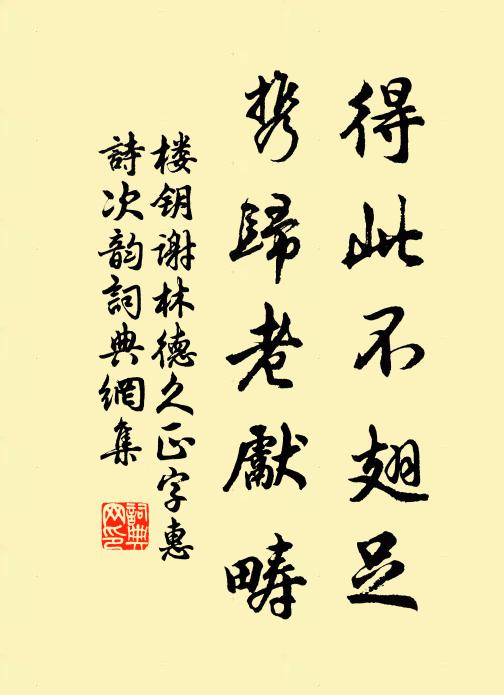 得此不翅足
携歸老獻畴
楼钥谢林德久正字惠
詩次韵詞典網集
詞典
网印